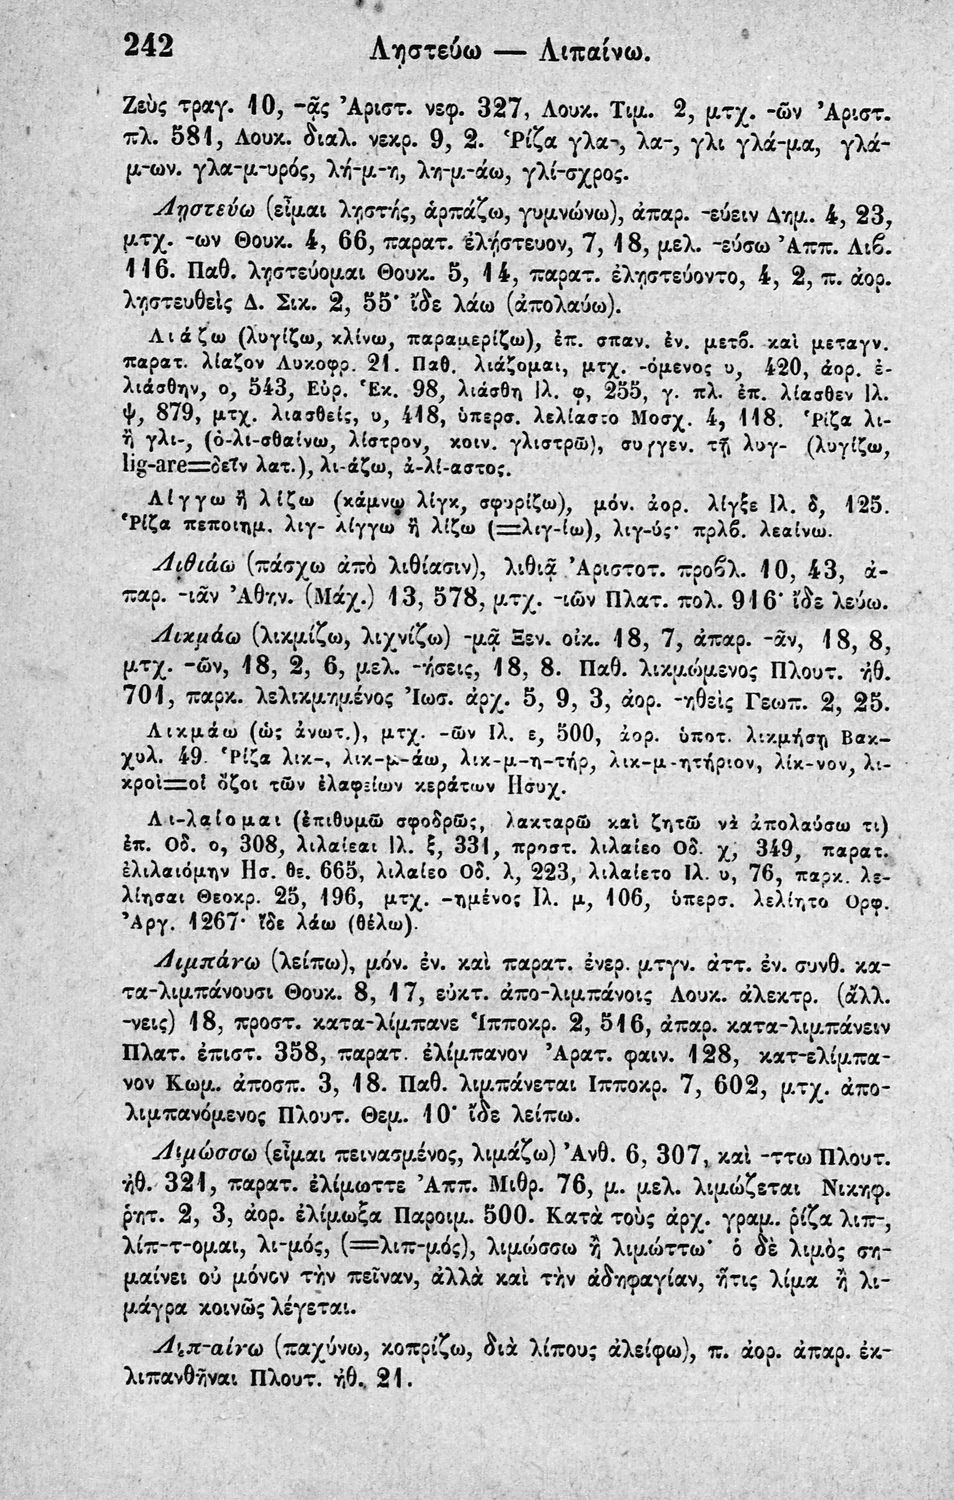 242 Ληστεύω — Λιπαίνω.
Ζεὺς τραγ. 10, -ᾷς Ἀριστ. νεφ. 327, Λουκ. Τιμ. 2, μτχ. -ῶν Ἀριστ.
πλ. 581, Λουκ. διαλ. νεκρ. 9, 2. Ῥίζα γλα-, λα-, γλι γλά-μα, γλά-
μ-ων. γλα-μ-υρός, λή-μ-η, λη-μ-άω, γλί-σχρος.
Ληστεύω (εἶμαι ληστής, ἁρπάζω, γυμνώνω), ἀπαρ. -εύειν Δημ. 4, 23,
μτχ. -ων Θουκ. 4, 66, παρατ. ἐλήστευον, 7, 18, μελ. -εύσω Ἀππ. Λιϐ.
116. Παθ. ληστεύομαι Θουκ. 5, 14, παρατ. ἐληστεύοντο, 4, 2, π. ἀορ.
ληστευθεὶς Δ. Σικ. 2, 55· ἴδε λάω (ἀπολαύω).
Λιάζω (λυγίζω, κλίνω, παραμερίζω), ἐπ. σπαν. ἐν. μετϐ. καὶ μεταγν.
παρατ. λίαζον Λυκοφρ. 21. Παθ. λιάζομαι, μτχ. -όμενος υ, 420, ἀορ. ἐ-
λιάσθην, ο, 543, Εὐρ. Ἑκ. 98, λιάσθη Ιλ. φ, 255, γ. πλ. ἐπ. λίασθεν Ιλ.
ψ, 879, μτχ. λιασθείς, υ, 418, ὑπερσ. λελίαστο Μοσχ. 4, 118. Ῥίζα λι-
ἢ γλι-, (ὀ-λι-σθαίνω, λίστρον, κοιν. γλιστρῶ), συγγεν. τῇ λυγ- (λυγίζω,
lig-are=δεῖν λατ.), λι-άζω, ἀ-λί-αστος.
Λίγγω ἢ λίζω (κάμνω λίγκ, σφυρίζω), μόν. ἀορ. λίγξε Ιλ. δ, 125.
Ῥίζα πεποιημ. λιγ- λίγγω ἢ λίζω (=λιγ-ίω), λιγ-ύς· πρλϐ. λεαίνω.
Λιθιάω (πάσχω ἀπὸ λιθίασιν), λιθιᾷ Ἀριστοτ. προϐλ. 10, 43, ἀ-
παρ. -ιᾶν Ἀθην. (Μάχ.) 13, 578, μτχ. -ιῶν Πλατ. πολ. 916· ἴδε λεύω.
Λικμάω (λικμίζω, λιχνίζω) -μᾷ Ξεν. οἰκ. 18, 7, ἀπαρ. -ᾶν, 18, 8,
μτχ. -ῶν, 18, 2, 6, μελ. -ήσεις, 18, 8. Παθ. λικμώμενος Πλουτ. ἠθ.
701, παρκ. λελικμημένος Ἰωσ. ἀρχ. 5, 9, 3, ἀορ. -ηθεὶς Γεωπ. 2, 25.
Λικμάω (ὡς ἀνωτ.), μτχ. -ῶν Ιλ. ε, 500, ἀορ. ὑποτ. λικμήσῃ Βακ-
χυλ. 49. Ῥίζα λικ-, λικ-μ-άω, λικ-μ-η-τήρ, λικ-μ-ητήριον, λίκ-νον, λι-
κροὶ=οἱ ὄζοι τῶν ἐλαφείων κεράτων Ησυχ.
Λι-λαίομαι (ἐπιθυμῶ σφοδρῶς, λακταρῶ καὶ ζητῶ νὰ ἀπολαύσω τι)
ἐπ. Οδ. ο, 308, λιλαίεαι Ιλ. ξ, 331, προστ. λιλαίεο Οδ. χ, 349, παρατ.
ἐλιλαιόμην Ησ. θε. 665, λιλαίεο Οδ. λ, 223, λιλαίετο Ιλ. υ, 76, παρκ. λε-
λίησαι Θεοκρ. 25, 196, μτχ. -ημένος Ιλ. μ, 106, ὑπερσ. λελίητο Ορφ.
Ἀργ. 1267· ἴδε λάω (θέλω).
Λιμπάνω (λείπω), μόν. ἐν. καὶ παρατ. ἐνερ. μτγν. ἀττ. ἐν. συνθ. κα-
τα-λιμπάνουσι Θουκ. 8, 17, εὐκτ. ἀπο-λιμπάνοις Λουκ. ἀλεκτρ. (ἄλλ.
-νεις) 18, προστ. κατα-λίμπανε Ἱπποκρ. 2, 516, ἀπαρ. κατα-λιμπάνειν
Πλατ. ἐπιστ. 358, παρατ. ἐλίμπανον Ἀρατ. φαιν. 128, κατ-ελίμπα-
νον Κωμ. ἀποσπ. 3, 18. Παθ. λιμπάνεται Ιπποκρ. 7, 602, μτχ. ἀπο-
λιμπανόμενος Πλουτ. Θεμ. 10· ἴδε λείπω.
Λιμώσσω (εἶμαι πεινασμένος, λιμάζω) Ἀνθ. 6, 307, καὶ -ττω Πλουτ.
ἠθ. 321, παρατ. ἐλίμωττε Ἀππ. Μιθρ. 76, μ. μελ. λιμώζεται Νικηφ.
ῥητ. 2, 3, ἀορ. ἐλίμωξα Παροιμ. 500. Κατὰ τοὺς ἀρχ. γραμ. ῥίζα λιπ-,
λίπ-τ-ομαι, λι-μός, (=λιπ-μός), λιμώσσω ἢ λιμώττω· ὁ δὲ λιμὸς ση-
μαίνει οὐ μόνον τὴν πεῖναν, ἀλλὰ καὶ τὴν ἀδηφαγίαν, ἥτις λίμα ἢ λι-
μάγρα κοινῶς λέγεται.
Λιπ-αίνω (παχύνω, κοπρίζω, διὰ λίπους ἀλείφω), π. ἀορ. ἀπαρ. ἐκ-
λιπανθῆναι Πλουτ. ἠθ. 21.